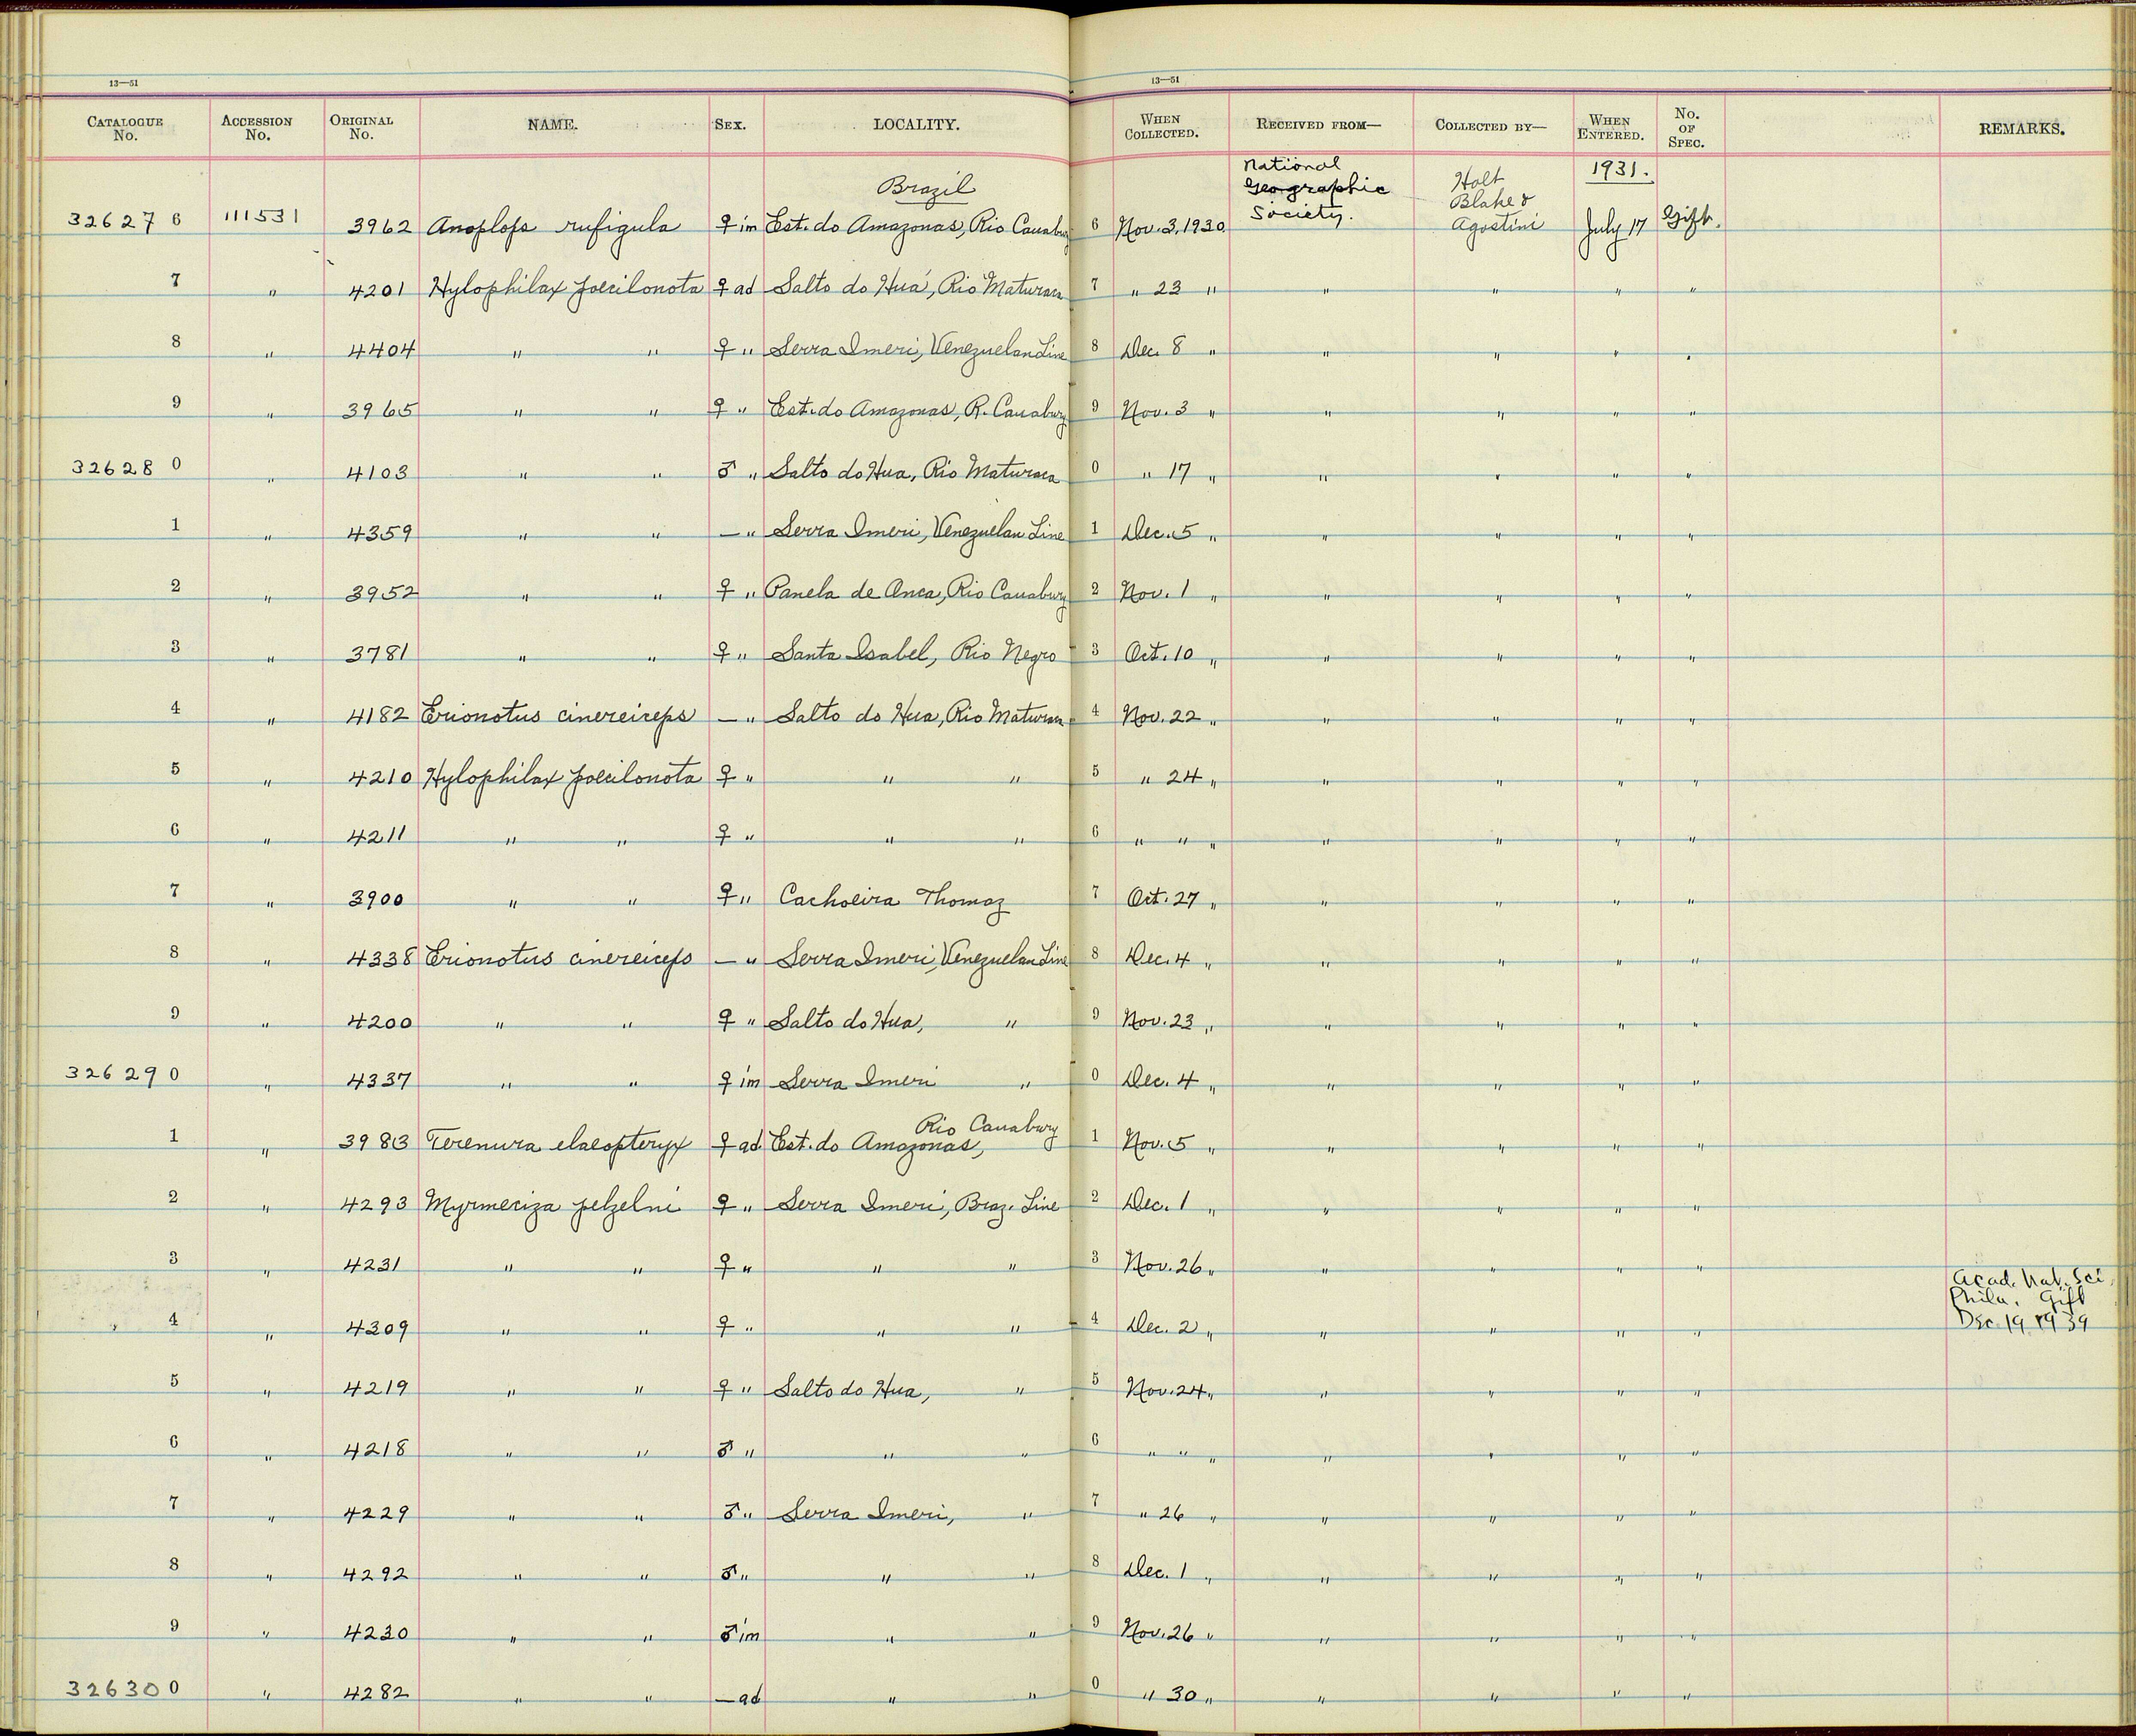 13—51 13—51
CATALOGUE No. ACCESSION No. ORIGINAL No. NAME. SEX. LOCALITY. WHEN COLLECTED. RECEIVED FROM— COLLECTED BY— WHEN ENTERED. No. OF SPEC. REMARKS.
Brazil National Geographic Society. Holt Blake & Agostini 1931.
326276 111531 3962 Anoplops rufigula ♀ im Est. do Amazonas, Rio Cauabury 6 Nov. 3, 1930 July 17 Gift.
7 " 4201 Hylophilax poecilonota ♀ ad Salto do Huá, Rio Maturaca 7 " 23 " " " " "
8 " 4404 " " ♀ " Serra Imeri, Venezuelan Line 8 Dec. 8 " " " " "
9 " 3965 " " ♀ " Est. do Amazonas, R. Cauabury 9 Nov. 3 " " " " "
326280 " 4103 " " ♂ " Salto do Hua, Rio Maturaca 0 " 17 " " " " "
1 " 4359 " " — " Serra Imeri, Venezuelan Line 1 Dec. 5 " " " " "
2 " 3952 " " ♀ " Panela de Onca, Rio Cauabury 2 Nov. 1 " " " " "
3 " 3781 " " ♀ " Santa Isabel, Rio Negro 3 Oct. 10 " " " " "
4 " 4182 Erionotus cinereiceps — " Salto do Hua, Rio Maturaca 4 Nov. 22 " " " " "
5 " 4210 Hylophilax poecilonota ♀ " " " 5 " 24 " " " " "
6 " 4211 " " ♀ " " " 6 " " " " " " "
7 " 3900 " " ♀ " Cachoeira Thomaz 7 Oct. 27 " " " " "
8 " 4338 Erionotus cinereiceps — " Serra Imeri, Venezuelan Line 8 Dec. 4 " " " " "
9 " 4200 " " ♀ " Salto do Hua, " 9 Nov. 23 " " " " "
326290 " 4337 " " ♀ im Serra Imeri " 0 Dec. 4 " " " " "
1 " 3983 Terenura elaeopteryx ♀ ad. Est. do Amazonas, Rio Cauabury 1 Nov. 5 " " " " "
2 " 4293 Myrmeciza pelzelni ♀ " Serra Imeri, Braz. Line 2 Dec. 1 " " " " "
3 " 4231 " " ♀ " " " 3 Nov. 26 " " " " "
4 " 4309 " " ♀ " " " 4 Dec. 2 " " " " " Acad. Nat. Sci. Phila. Gift Dec. 19, 1939
5 " 4219 " " ♀ " Salto do Hua, " 5 Nov. 24 " " " " "
6 " 4218 " " ♂ " " " 6 " " " " " " "
7 " 4229 " " ♂ " Serra Imeri, " 7 " 26 " " " " "
8 " 4292 " " ♂ " " " 8 Dec. 1 " " " " "
9 " 4230 " " ♂ im " " 9 Nov. 26 " " " " "
326300 " 4282 " " — ad " " 0 " 30 " " " " "